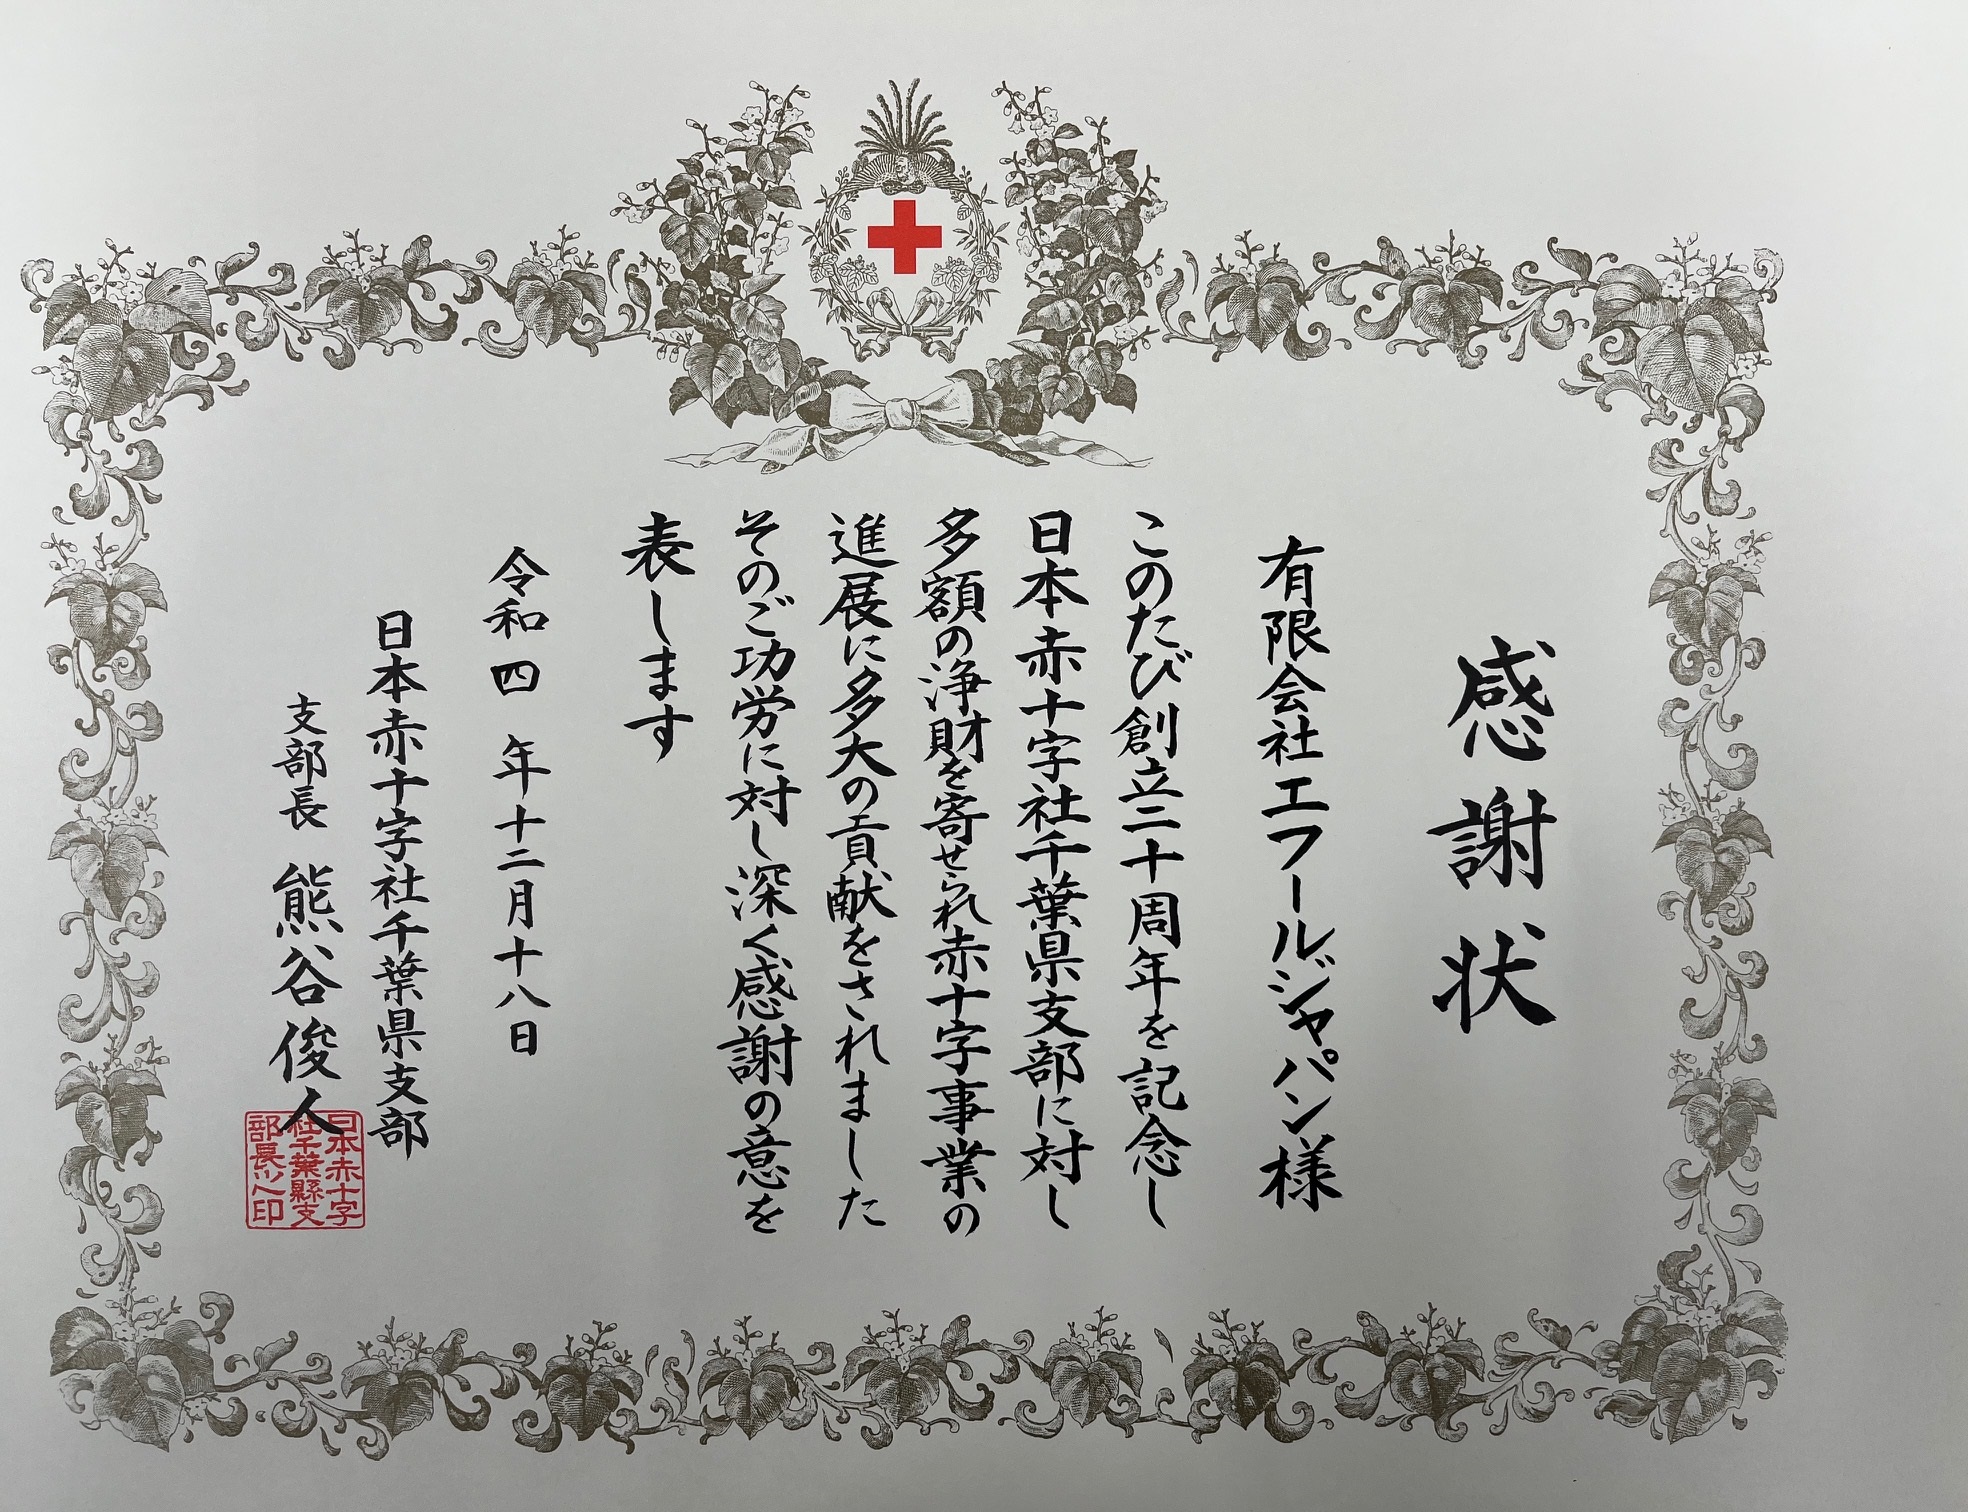 感謝状
有限会社エフールジャパン様
このたび創立二十周年を記念し
日本赤十字社千葉県支部に対し
多額の浄財を寄せられ赤十字事業の
進展に多大の貢献をされました
そのご功労に対し深く感謝の意を
表します
令和四年十二月十八日
日本赤十字社千葉県支部
支部長 熊谷俊人
日本赤十字
社千葉縣支
部長之印